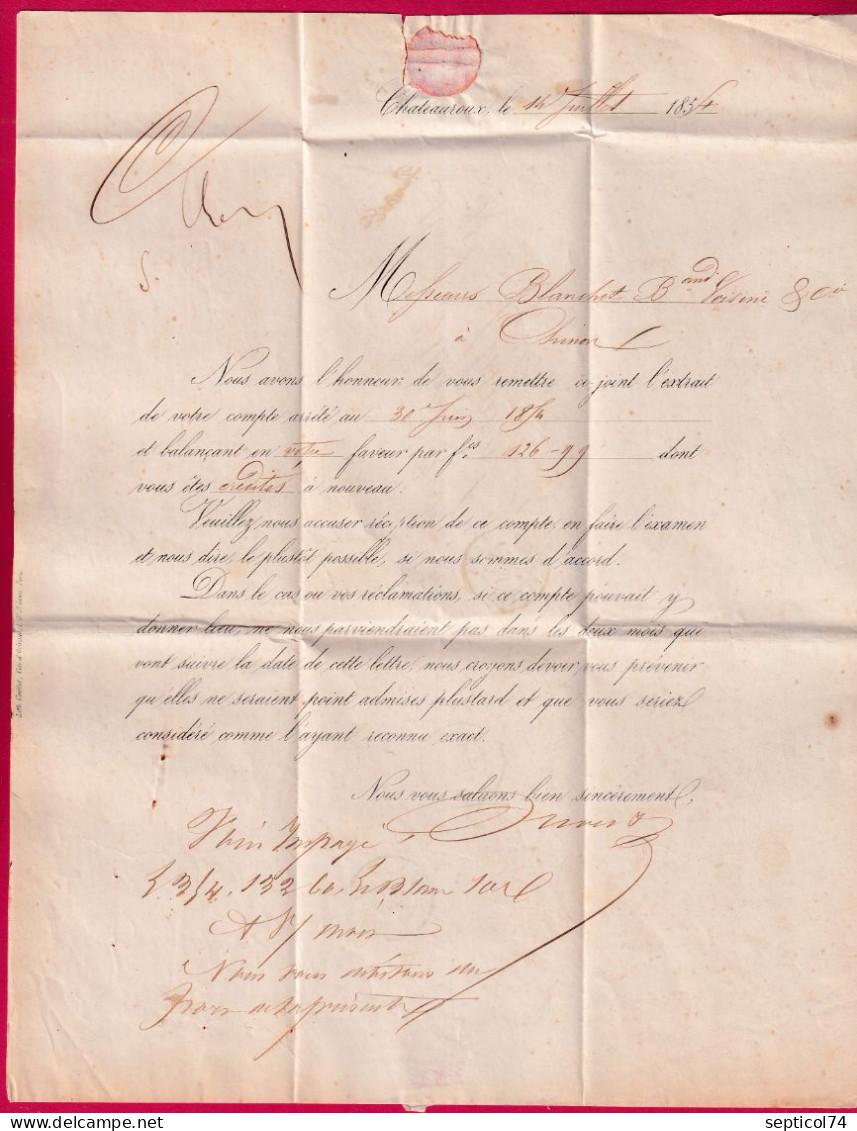 Chateauroux, le 14 Juillet 1854
Messieurs Blanchet B and Voisine & Cie
à Chinon
Nous avons l'honneur de vous remettre ci-joint l'extrait
de votre compte arrêté au 30 Juin 1854
et balançant en votre faveur par f.cs 126-99 dont
vous êtes crédités à nouveau.
Veuillez nous accuser réception de ce compte en faire l'examen
et nous dire, le plustôt possible, si nous sommes d'accord.
Dans le cas ou vos réclamations, si ce compte pouvait y
donner lieu, ne nous parviendraient pas dans les deux mois que
vont suivre la date de cette lettre, nous croyons devoir vous prévenir
qu'elles ne seraient point admises plustard et que vous seriez
considéré comme l'ayant reconnu exact.
Nous vous saluons bien sincèrement,
Impayé
132
Nous vous débitons du
Frais de la présente
septicol74